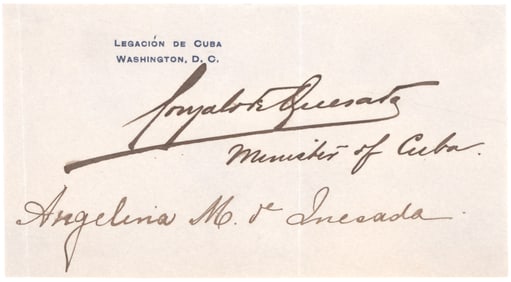 LEGACIÓN DE CUBA
WASHINGTON, D. C.
Gonzalo de Quesada
Minister of Cuba.
Angelina M. de Quesada.